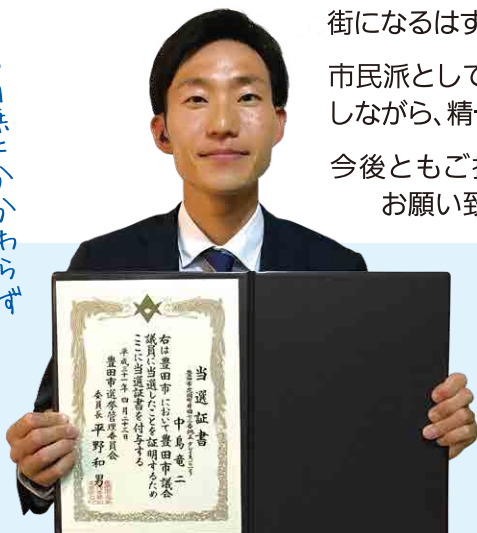 街になるはず
市民派として
しながら、精
今後ともご
お願い致
かかわらず
当選証書
中島竜二
右は豊田市において豊田市議会
議員に当選したことを証明するため
ここに当選証書を付与する
平成三十一年四月二十二日
豊田市選挙管理委員会
委員長 平野和男